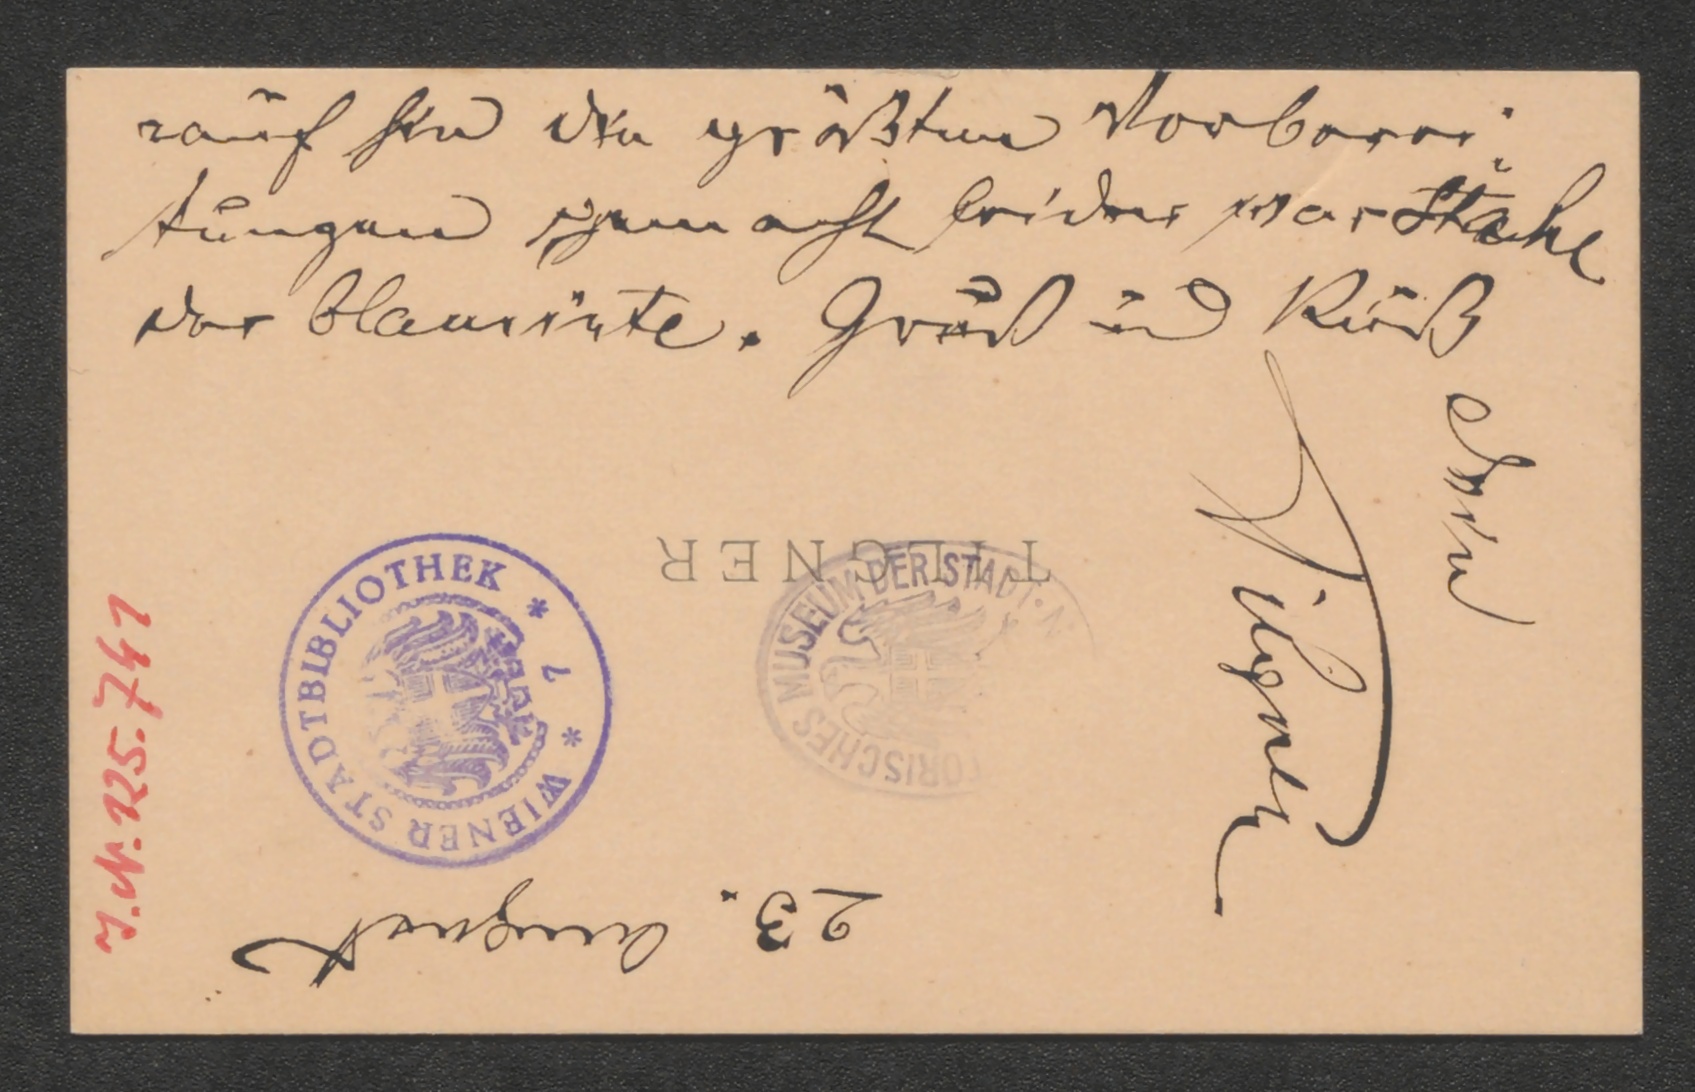 rauf hin die größten Vorberei¬
tungen gemacht leider war Stake
der blamirte. Gruß und Kuß
dein
Tilgner
TILGNER
WIENER STADTBIBLIOTHEK * 7 *
HISTORISCHES MUSEUM DER STADT
23. August
J.N. 125.741